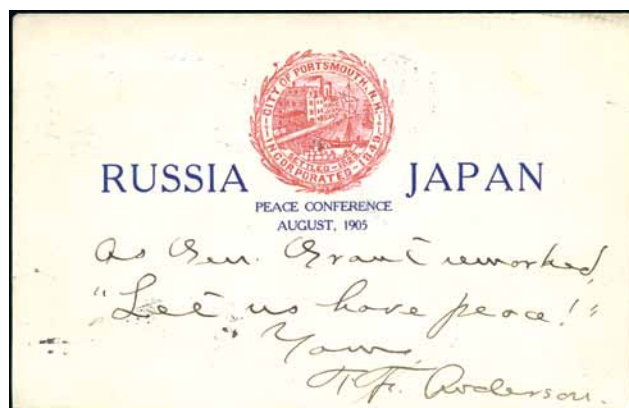 CITY OF PORTSMOUTH, N.H.
SETTLED-1623
INCORPORATED-1849
RUSSIA JAPAN
PEACE CONFERENCE
AUGUST, 1905
As Gen. Grant remarked,
"Let us have peace!"
Yours,
T. F. Anderson.